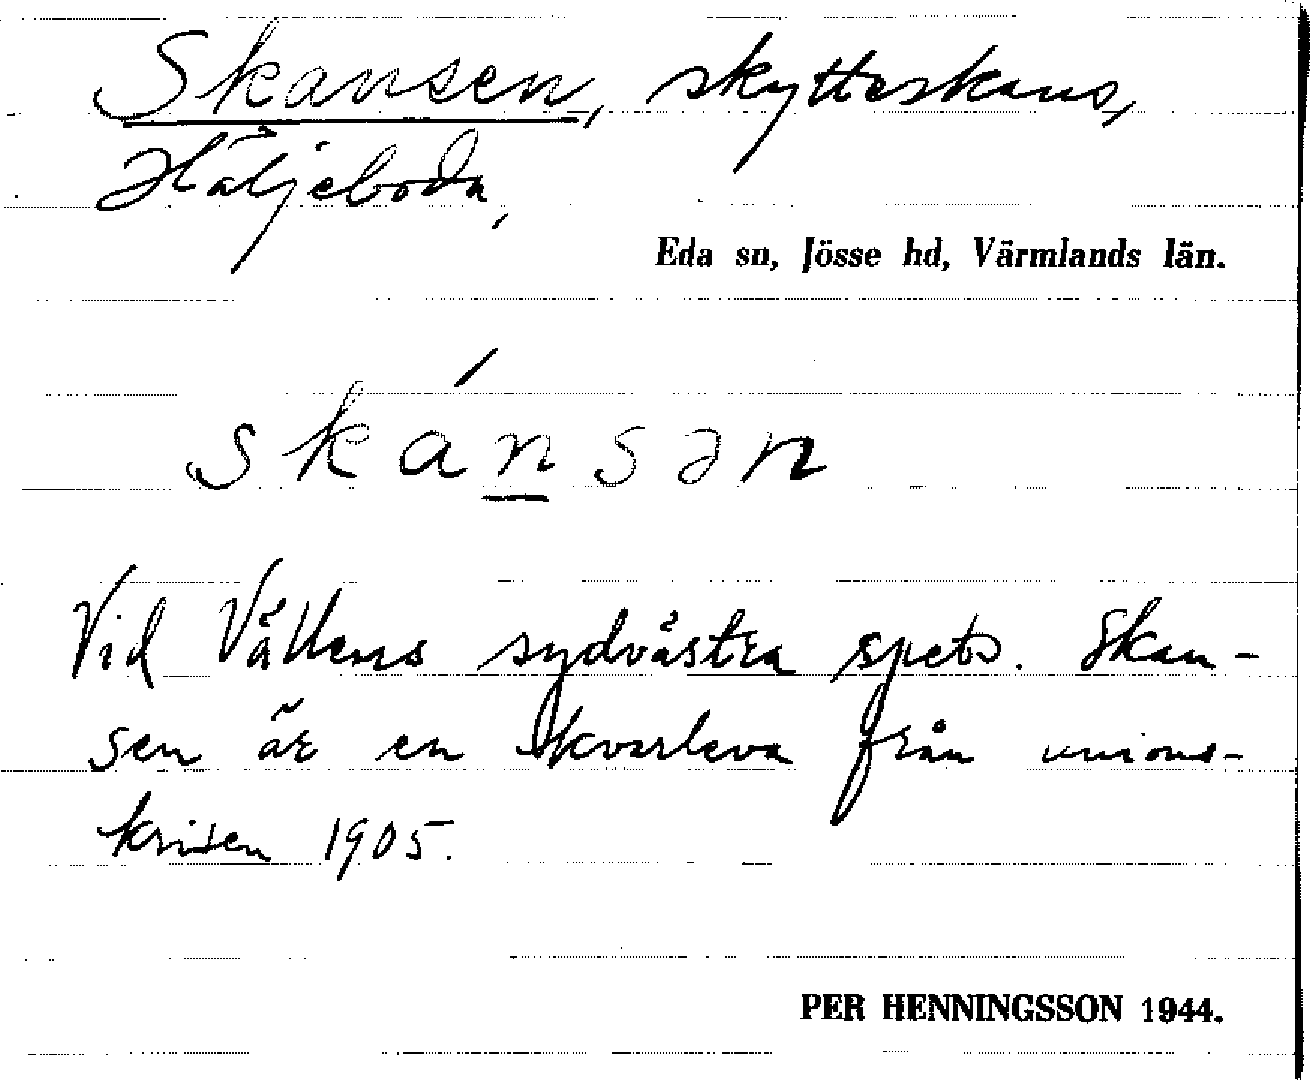 Skansen, skytteskans,
Häljeboda,
Eda sn, Jösse hd, Värmlands län.
skánsən
Vid Vällens sydvästra spets. Skan-
sen är en kvarleva från unions-
krisen 1905.
PER HENNINGSSON 1944.